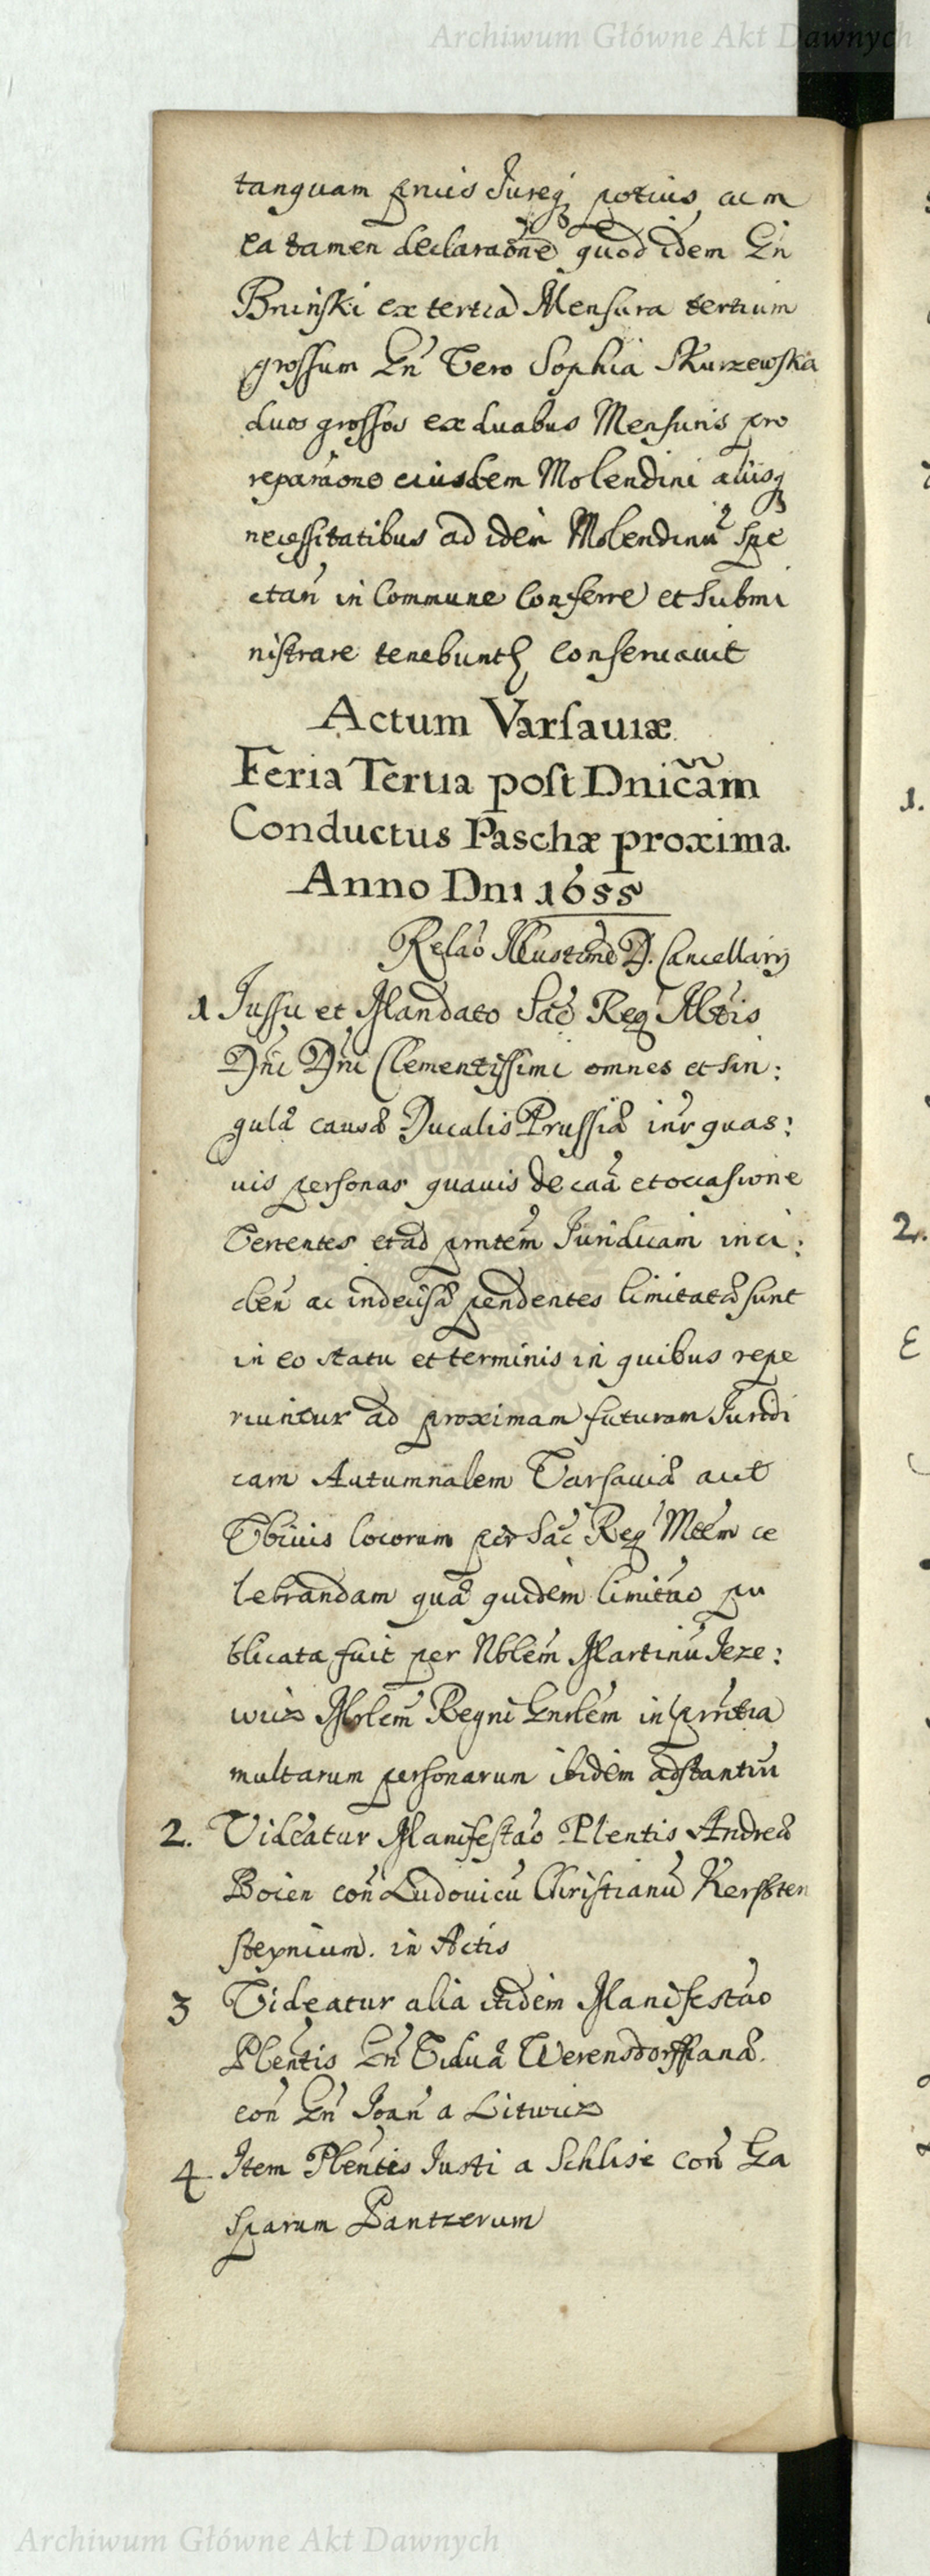 Archiwum Główne Akt Dawnych
tanquam prius Jureq potius cum
ea tamen declaraōne quod idem Gn̄
Bninski ex tertia Mensura tertium
grossum Gn̄ Vero Sophia Skurzewska
duos grossos ex duabus Mensuris pro
reparaōne eiusdem Molendini aliisq
necessitatibus ad idem Molendinū spe
ctan̄ in Commune Conferre et submi
nistrare tenebunt conseruauit
Actum Varsauiæ
Feria Tertia post Dnicam
Conductus Paschæ proxima.
Anno Dni 1655
Relaō Illustme D. Cancellarij
1 Jussu et Mandato Sac Reg Mtis
Dn̄i Dn̄i Clementissimi omnes et sin:
gulæ causæ Ducalis Prussiæ intr quas:
uis personas quauis de caā et occasione
Vertentes et ad prntem Juridicam inci:
den̄ ac indecisæ pendentes limitatæ sunt
in eo statu et terminis in quibus repe
riuntur ad proximam futuram Juridi
cam Autumnalem Varsauiæ aut
Vbiuis locorum per Sac Reg Mtem ce
lebrandam quæ quidem limitaō pu
blicata fuit per Nblem Martinū Jeze:
wicz Mrlem Regni Gnrlem in prntia
multarum personarum ibidem adstantiū
2. Videatur Manifestaō Plentis Andreæ
Boien con̄ Ludouicū Christianū Kersten
steynium. in Actis
3 Videatur alia itidem Manifestaō
Plentis Gn̄ Viduæ Werensdorffianæ.
con̄ Gn̄ Joan̄ a Litwicz
4 Item Plentis Justi a Schlise con̄ Ga
sparum Pantzerum
1.
2.
Archiwum Główne Akt Dawnych